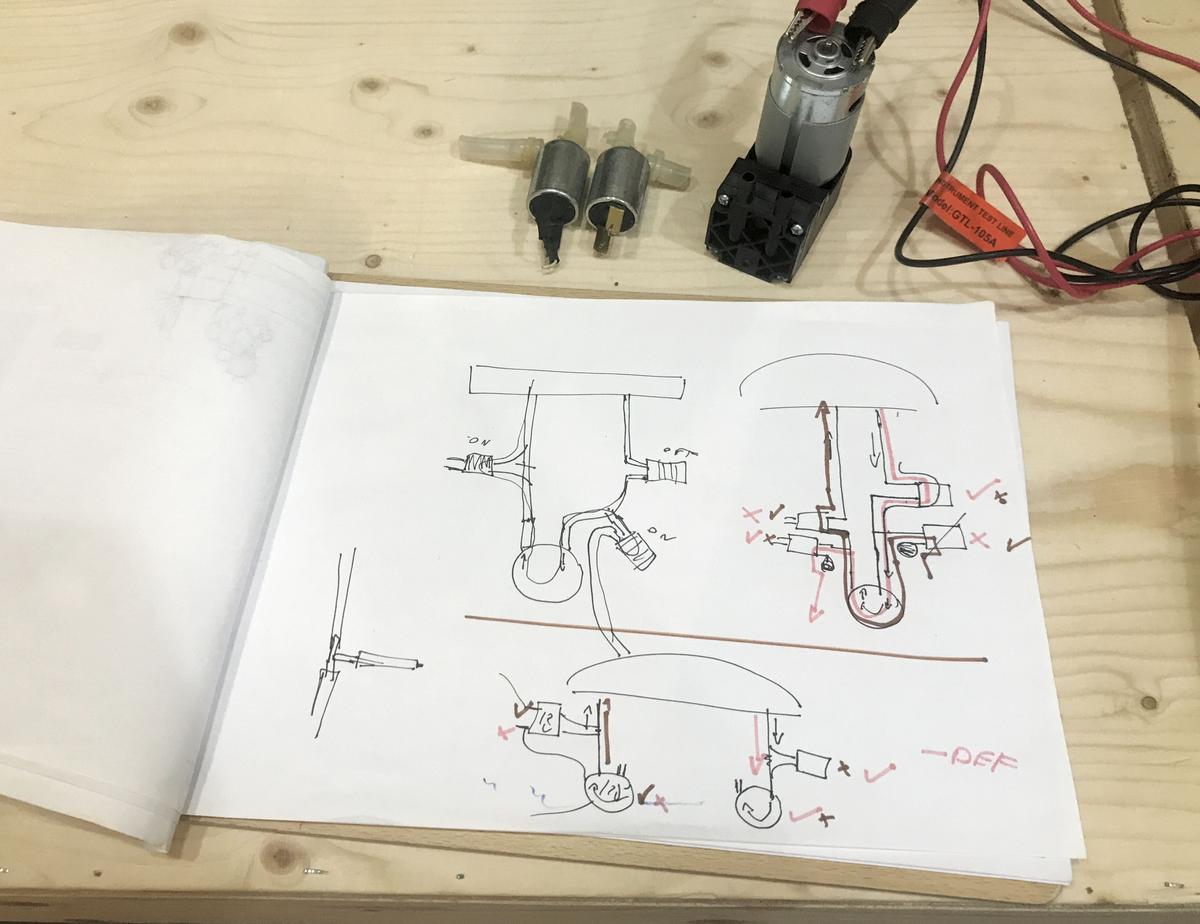 INSTRUMENT TEST LINE
Model:GTL-105A
ON
OFF
ON
-DEF